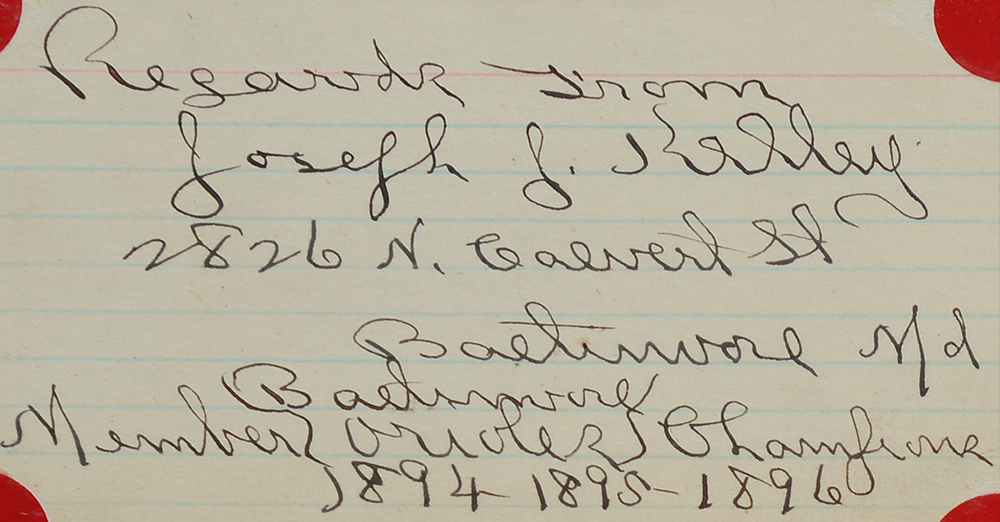 Regards From
Joseph J. Kelley
2826 N. Calvert St
Baltimore Md
Baltimore
Member Orioles Champions
1894 1895-1896